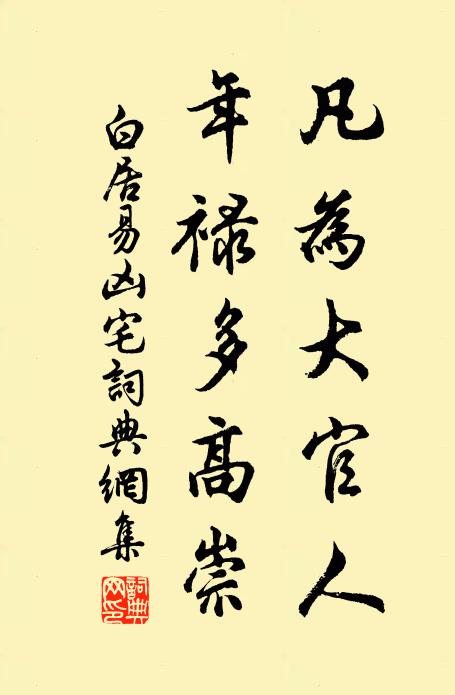 凡為大官人
年祿多高崇
白居易凶宅詞典網集
詞典網印